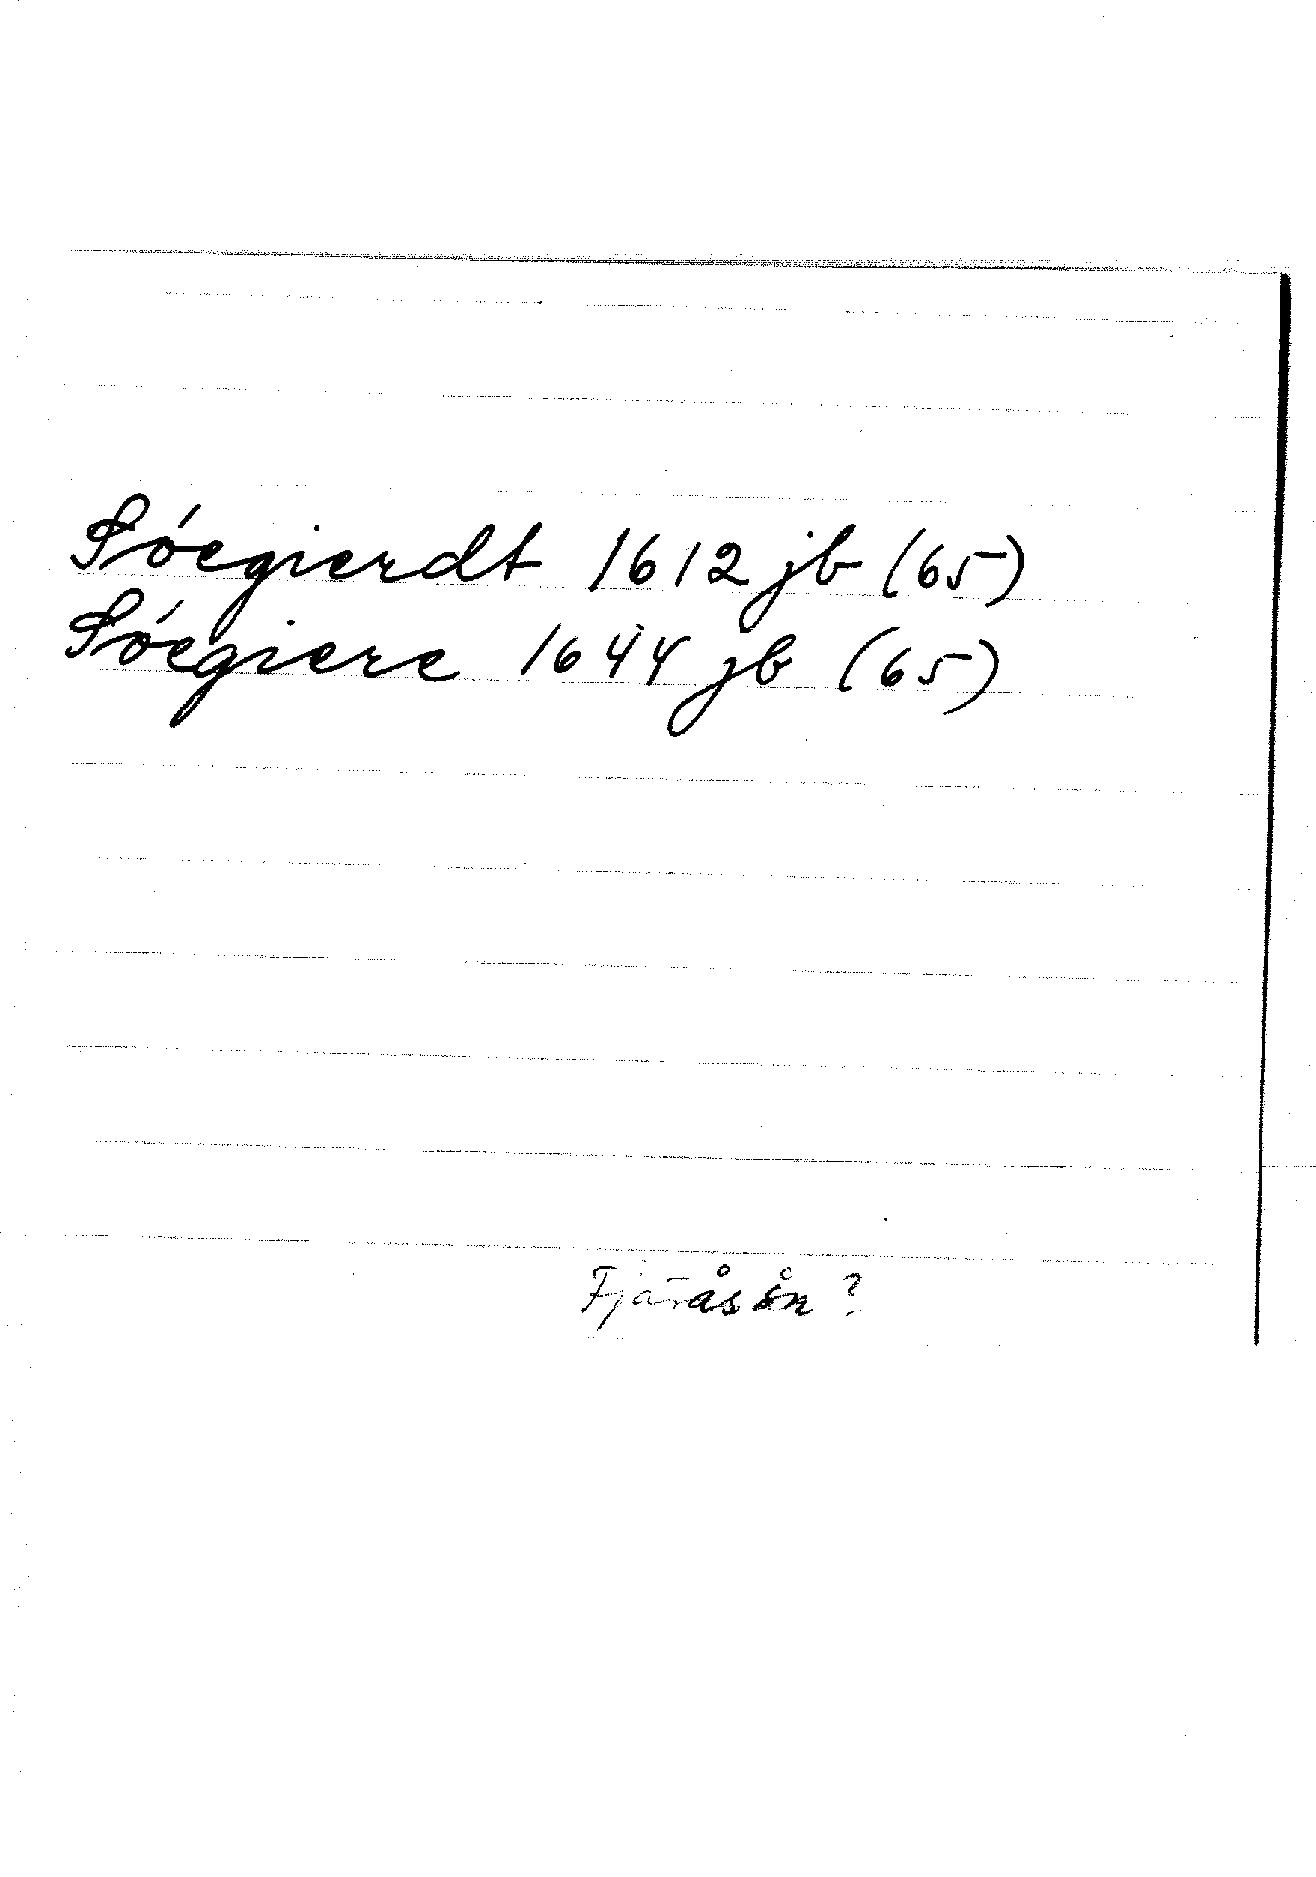 Sóegierdt 1612 jb (65)
Sóegiere 1644 jb (65)
Fjärås sn ?